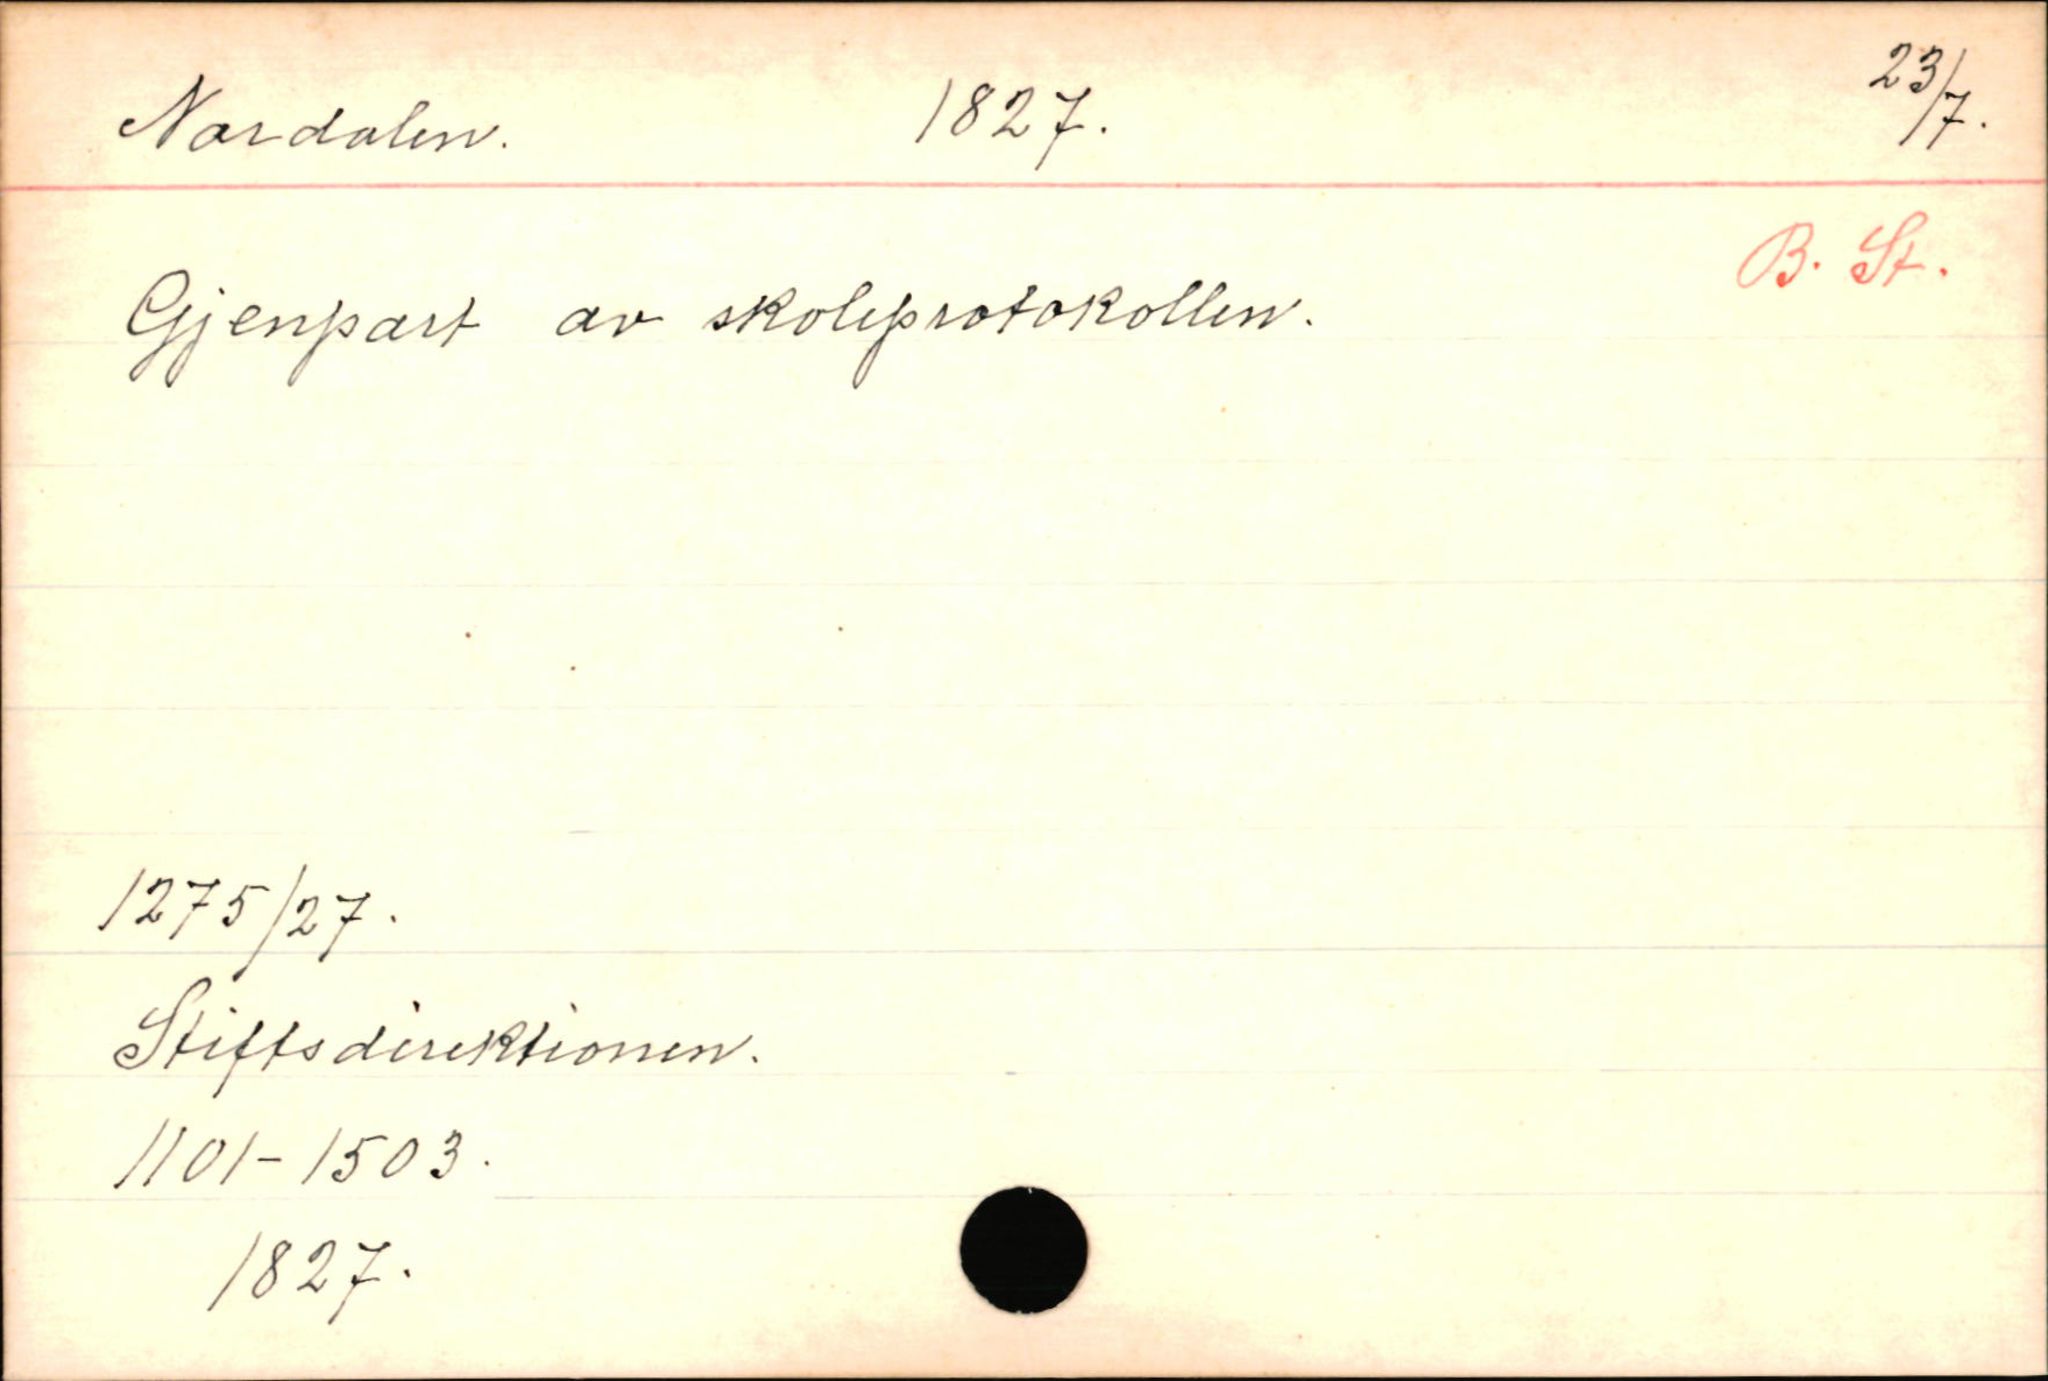 Nordalen. 1827. 23/7.
B. St.
Gjenpart av skoleprotokollen.
1275/27.
Stiftsdirektionen.
1101-1503.
1827.